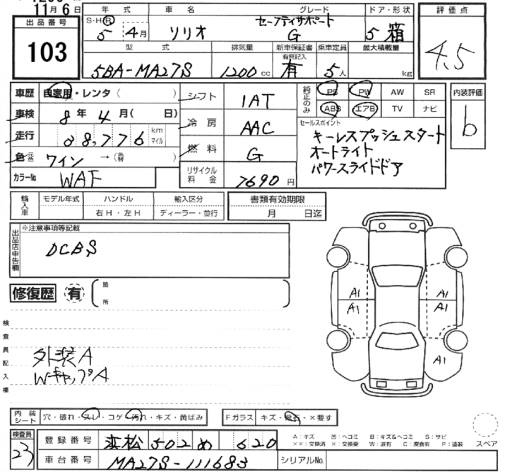 11月6日
出品番号 103
年式 S・H・R 5年 4月
車名 ソリオ
グレード セーフティサポート G
ドア・形状 5 箱
評価点 4.5
型式 5BA-MA27S
排気量 1200cc
新車保証書 有
乗車定員 5人
最大積載量 kg
車歴 自家用・レンタ( )
車検 8年 4月( 日)
走行 08,776 km マイル
色 ワイン →
カラーNo WAF
シフト IAT
冷房 AAC
燃料 G
リサイクル料金 7690円
純正のみ PS PW AW SR
ABS エアB TV ナビ
セールスポイント
キーレスプッシュスタート
オートライト
パワースライドドア
内装評価 b
輸入車 モデル年式 ハンドル 右H・左H 輸入区分 ディーラー・並行
書類有効期限 月 日迄
出品店申告欄 ※注意事項等記載
DCBS
修復歴 有 箇所
検査員記入欄
外装A
WキャップA
A1 A1
A1 A1
内装シート 穴・破れ・スレ・コゲ・汚れ・キズ・黄ばみ
Fガラス キズ・
・×要す
検査員 23
登録番号 浜松 502 め 620
車台番号 MA27S-111683
シリアルNo.
A:キズ U:ヘコミ B:キズ&ヘコミ S:サビ
××:交換済 ×:要交換 W:波 C:腐食 P:塗装
スペア